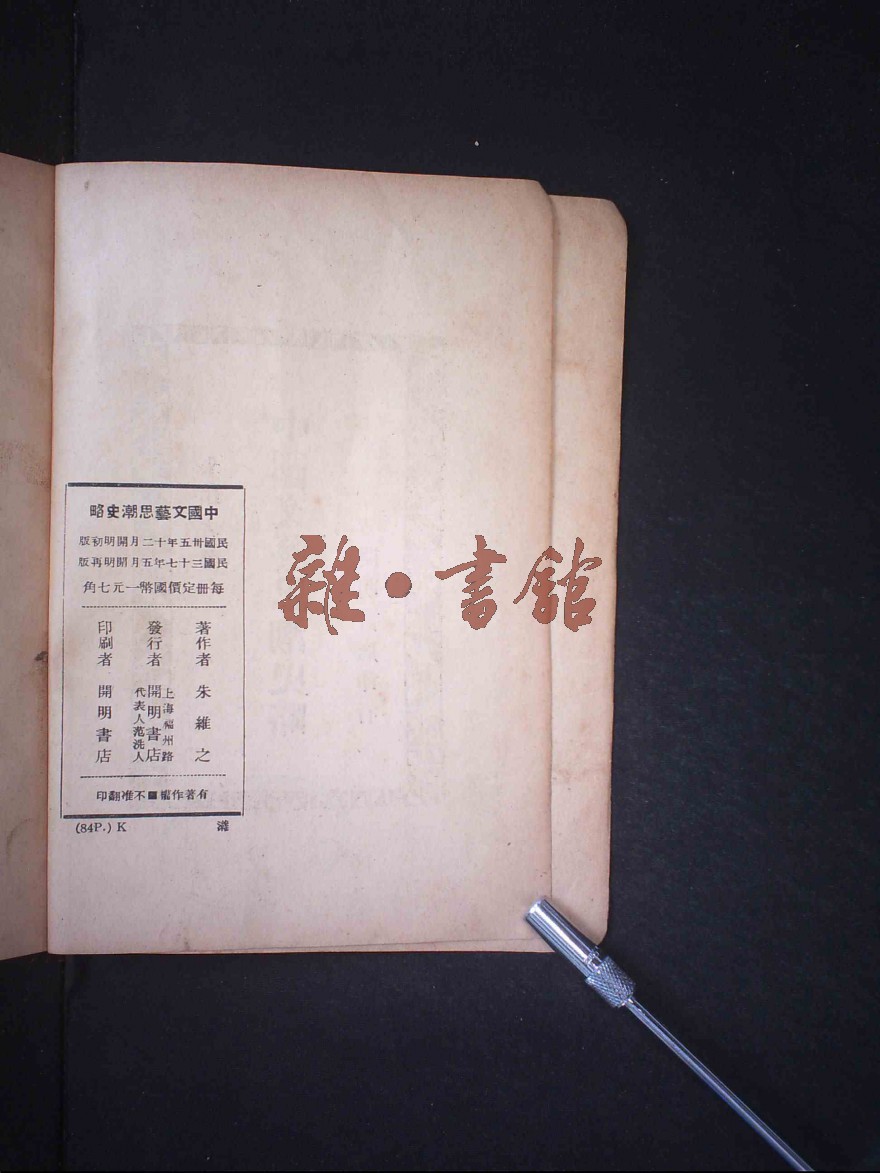 中國文藝思潮史略
民國卅五年十二月開明初版
民國三十七年五月開明再版
每冊定價國幣一元七角
著作者 朱維之
發行者 上海福州路
開明書店
代表人范洗人
印刷者 開明書店
有著作權■不准翻印
(84P.) K
雜●書館